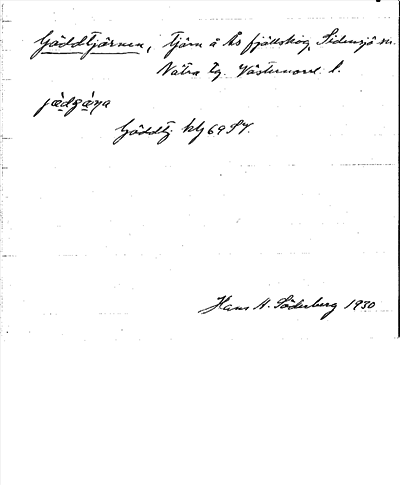 Gäddtjärnen, tjärn å Ås fjällskog, Sidensjö sn.
Nätra tg. Västernorrl. l.
Gäddtj klj 69 SV.
Hans H. Söderberg 1930